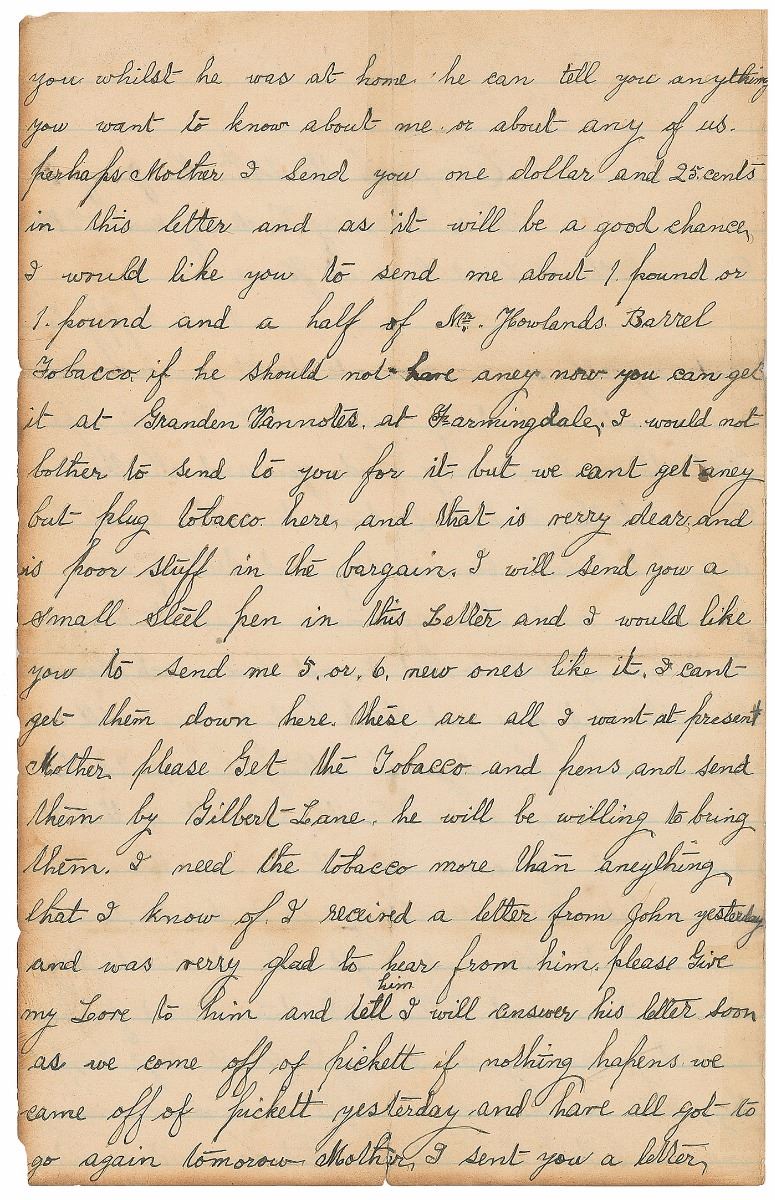 you whilst he was at home he can tell you anything
you want to know about me or about any of us.
perhaps Mother I send you one dollar and 25 cents
in this letter and as it will be a good chance,
I would like you to send me about 1 pound or
1. pound and a half of Mr. Howlands Barrel
Tobacco. if he should not have aney now you can get
it at Granden Vannotes. at Farmingdale, I would not
bother to send to you for it but we cant get aney
but plug tobacco here, and that is verry dear, and
is poor stuff in the bargain. I will send you a
small steel pen in this Letter and I would like
you to send me 5. or. 6. new ones like it. I cant
get them down here. these are all I want at present
Mother, please Get the Tobacco and pens and send
them by Gilbert Lane. he will be willing to bring
them. I need the tobacco more than aneything,
that I know of. I received a letter from John yesterday
and was verry glad to hear from him. please Give
my Love to him and tell him I will answer his letter soon
as we come off of pickett if nothing hapens we
came off of pickett yesterday and have all got to
go again tomorow Mother, I sent you a letter,